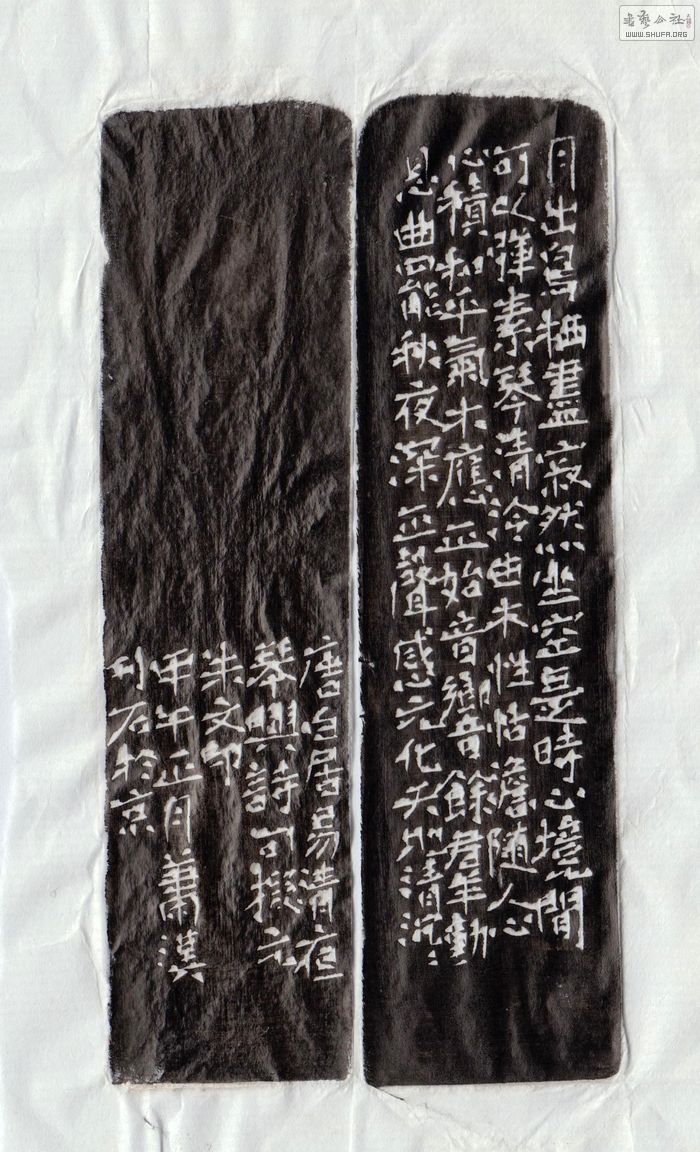 月出鳥栖盡寂然坐空是時心境間
可以彈素琴清泠由木性恬澹隨人心
心積和平氣木應正始音響餘群動
息曲罷秋夜深正聲感元化天地清沉〻
唐白居易清夜
琴興詩可擬元
朱文印
甲午正月蕭漢
刊石於京
書藝公社
WWW.SHUFA.ORG